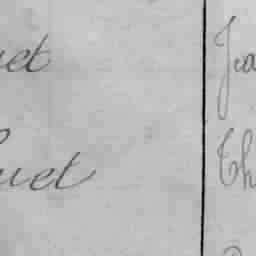 uet Jea
uet Th